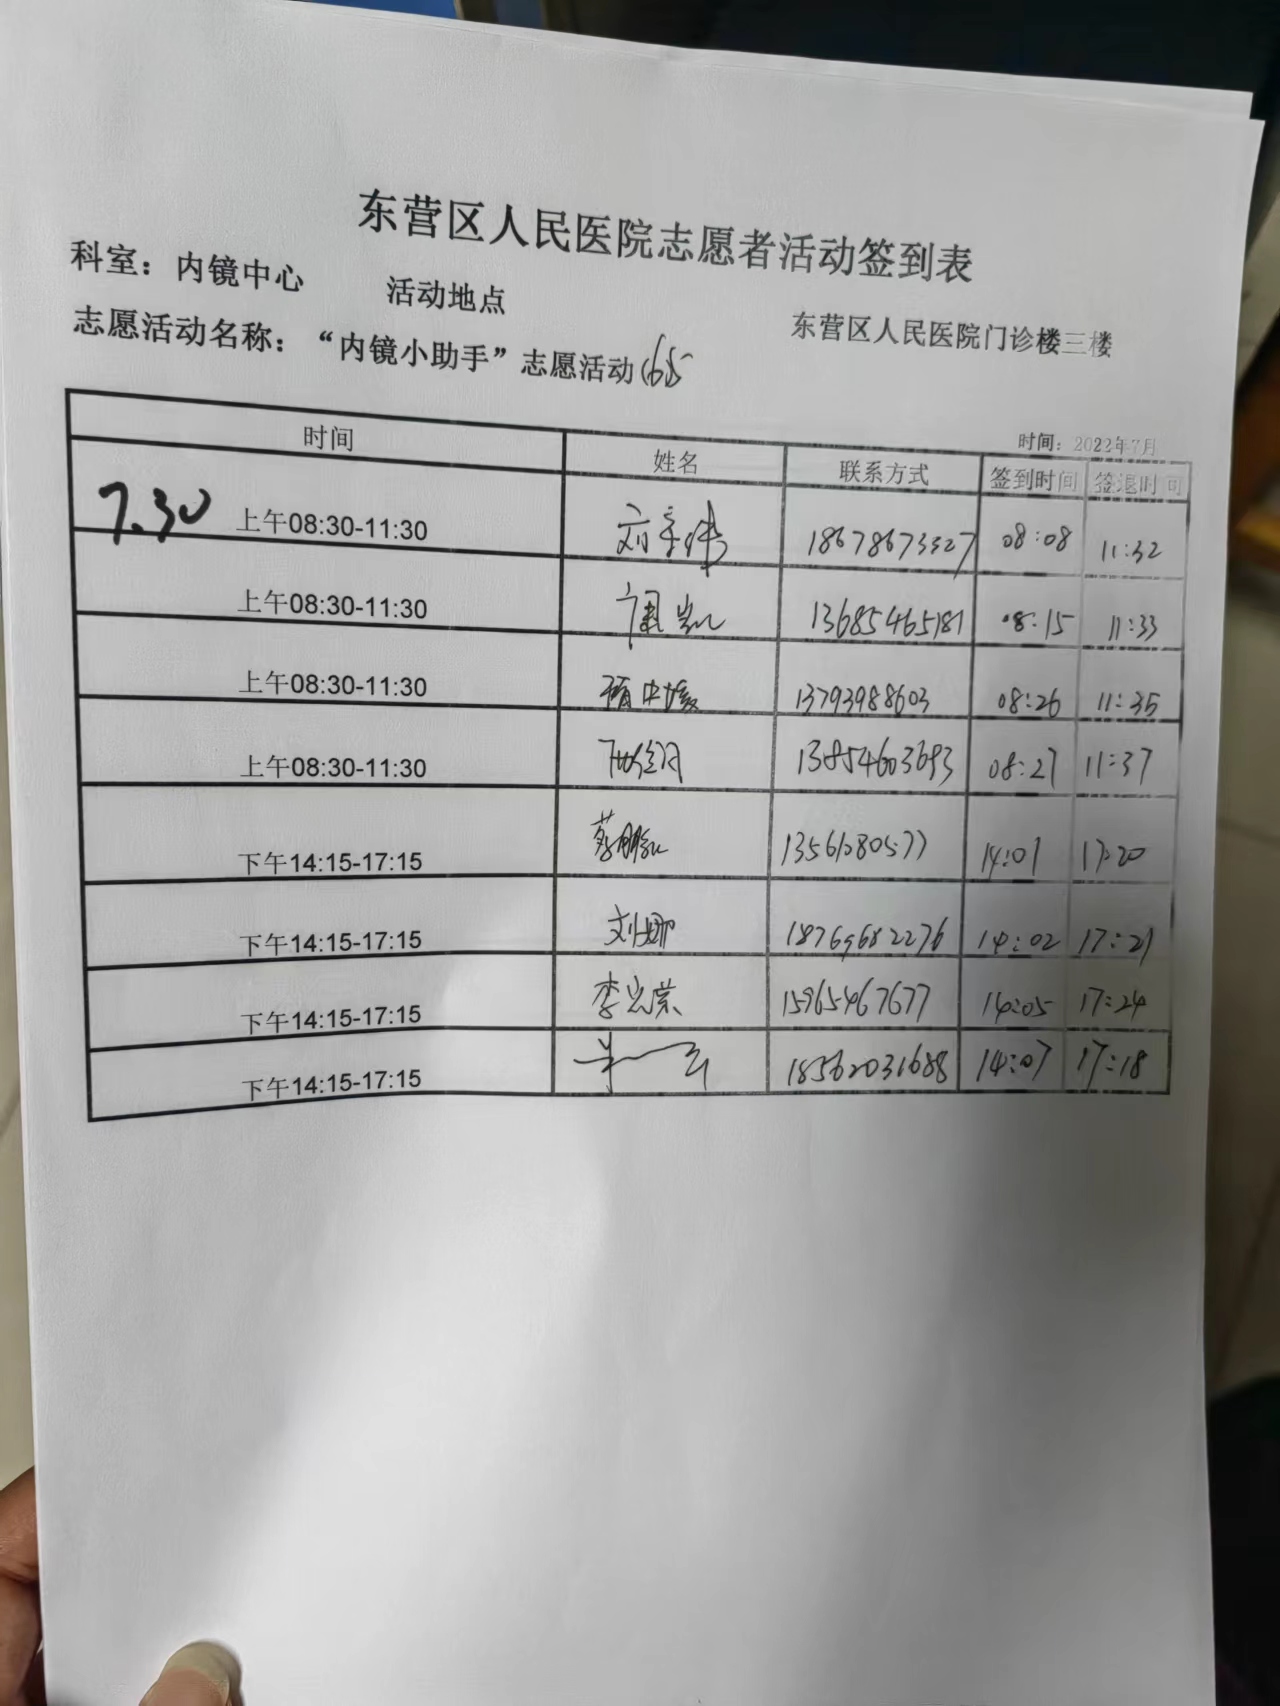 东营区人民医院志愿者活动签到表
科室：内镜中心 活动地点 东营区人民医院门诊楼三楼
志愿活动名称：“内镜小助手”志愿活动
时间：2022年7月
时间 姓名 联系方式 签到时间 签退时间
7.30 上午08:30-11:30 18678673327 08:08 11:32
上午08:30-11:30 13685465181 08:15 11:33
上午08:30-11:30 13793988603 08:26 11:35
上午08:30-11:30 13854603693 08:27 11:37
下午14:15-17:15 14:01 17:20
下午14:15-17:15 刘娜 18769682276 14:02 17:21
下午14:15-17:15 15965467677 14:05 17:24
下午14:15-17:15 18562031688 14:07 17:18